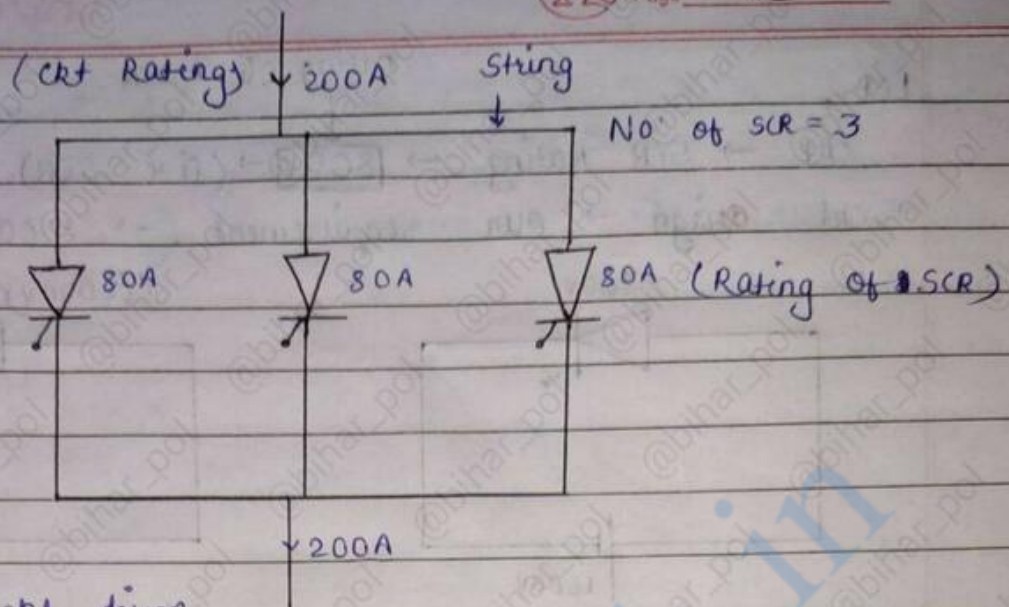 (Ckt Rating) 200A String
No. of SCR = 3
80A 80A 80A (Rating of SCR)
200A